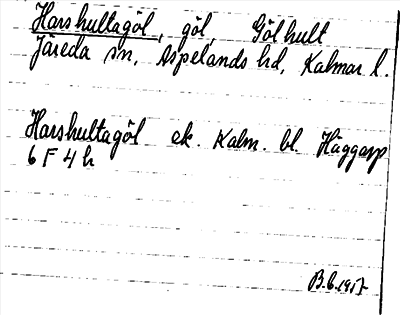 Harshultagöl, göl, Gölhult
Järeda sn, Aspelands hd, Kalmar l.
Harshultagöl ek. Kalm. bl. Häggarp
6 F 4 h